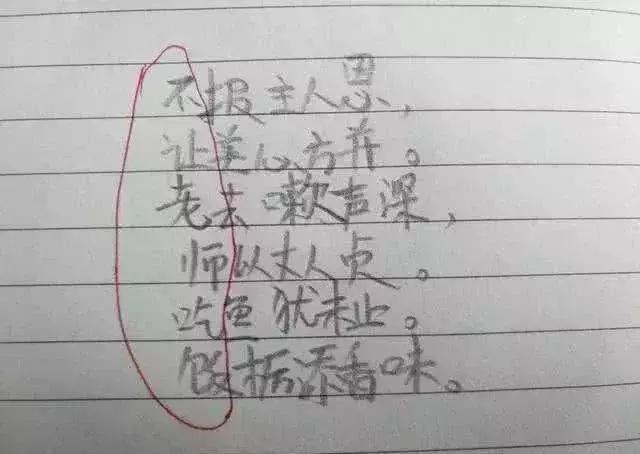 不报主人恩,
让美心方并。
老去嗽声深,
师以丈人贞。
吃鱼犹未止。
饭栝添香味。